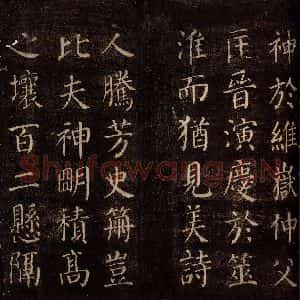 神於維嶽仲父
匡晉演慶於筮
淮而猶見美詩
人騰芳史豈
比夫神眀積髙
之壤百二懸隔
Shufawang.CN